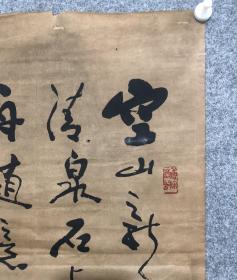 空山新
清泉石上
舟随意